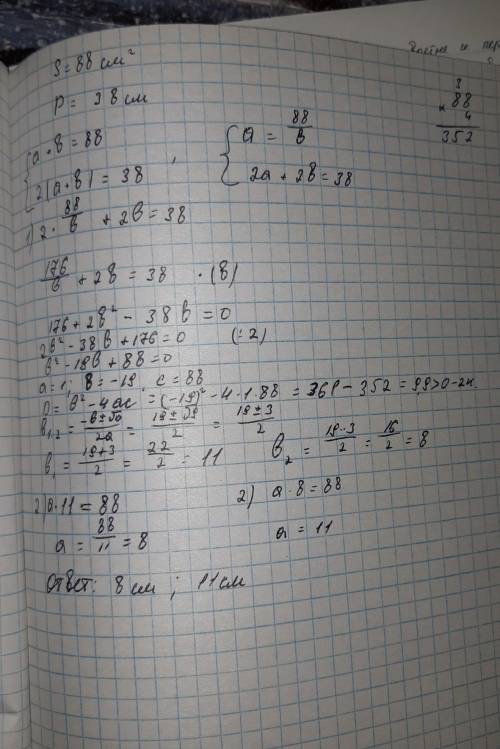 S = 88 см²
P = 38 см
{ a · b = 88
2(a · b) = 38 ,
{ a = 88/b
2a + 2b = 38
3
88
× 4
352
1) 2 · 88/b + 2b = 38
176/b + 2b = 38 · (b)
176 + 2b² - 38b = 0
2b² - 38b + 176 = 0 (: 2)
b² - 19b + 88 = 0
a = 1; b = -19, c = 88
D = b² - 4ac = (-19)² - 4 · 1 · 88 = 361 - 352 = 9, 9 > 0 - 2к.
b₁,₂ = (-b ± √D)/2a = (19 ± √9)/2 = (19 ± 3)/2
b₁ = (19 + 3)/2 = 22/2 = 11
b₂ = (19 - 3)/2 = 16/2 = 8
2) a · 11 = 88
a = 88/11 = 8
2) a · 8 = 88
a = 11
Ответ: 8 см ; 11 см